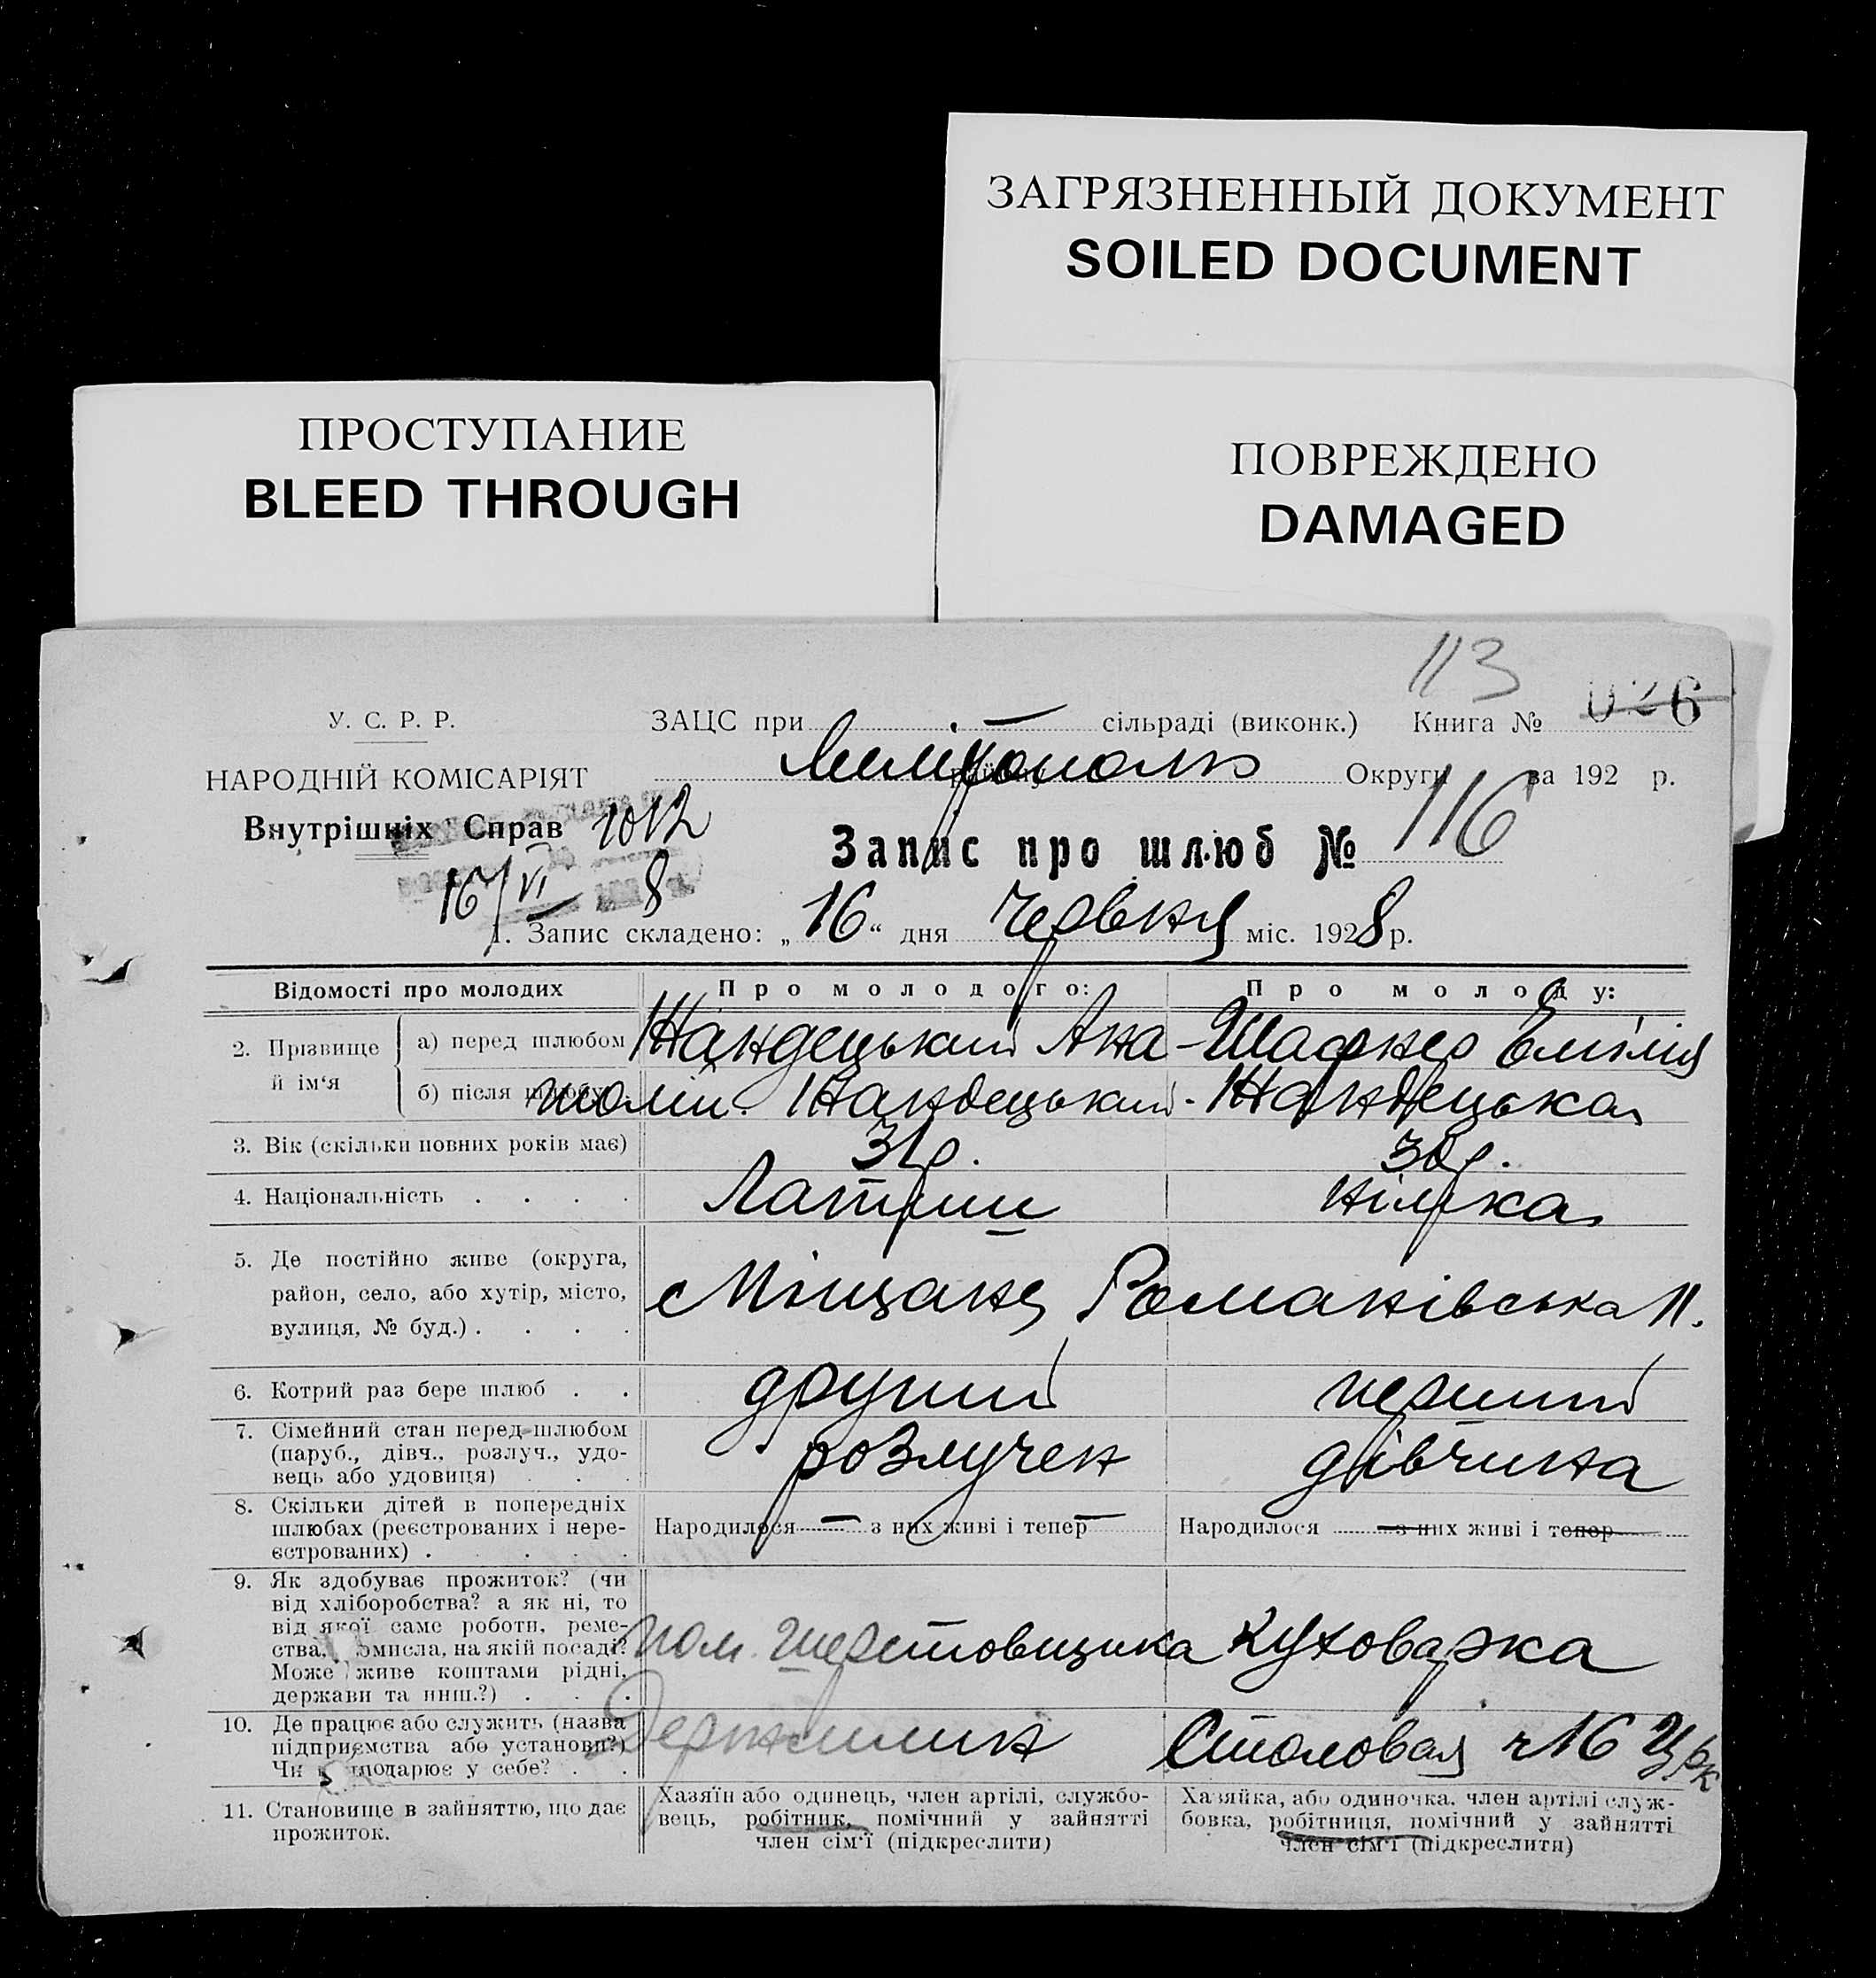 ЗАГРЯЗНЕННЫЙ ДОКУМЕНТ
SOILED DOCUMENT
ПРОСТУПАНИЕ
BLEED THROUGH
ПОВРЕЖДЕНО
DAMAGED
113
У. С. Р. Р.
ЗАЦС при . — сільраді (виконк.) Книга № 026
НАРОДНІЙ КОМІСАРІЯТ
Округи за 192 р.
Внутрішніх Справ 1012
Запис про шлюб № 116
16/VI 8
1. Запис складено: „16“ дня червня міс. 1928 р.
Відомості про молодих
Про молодого:
Про молоду:
2. Прізвище й ім‘я
а) перед шлюбом
Жандецький Ана-
Шафнер Емілія
б) після шлюбу
толій. Жандецький.
Жандецька
3. Вік (скільки повних років має)
31 р.
30 р.
4. Національність . . . .
Латиш
німка
5. Де постійно живе (округа,
район, село, або хутір, місто,
вулиця, № буд.) . . . .
Романівська 11.
6. Котрий раз бере шлюб . .
другий
перший
7. Сімейний стан перед шлюбом
(паруб., дівч., розлуч., удо-
вець або удовиця) . . .
розлучен
дівчина
8. Скільки дітей в попередніх
шлюбах (реєстрованих і нере-
єстрованих) . . . . .
Народилося — з них живі і тепер —
Народилося — з них живі і тепер
9. Як здобуває прожиток? (чи
від хліборобства? а як ні, то
від якої саме роботи, реме-
ства, омисла, на якій посаді?
Може живе коштами рідні,
держави та инш.?) . . .
пом. шерстовщика
Куховарка
10. Де працює або служить (назва
підприємства або установи?)
Чи подарює у себе? . .
Держмлин
Столовая ч 16 Црк
11. Становище в зайняттю, що дає
прожиток.
Хазяїн або одинець, член артілі, службо-
вець, робітник, помічний у зайнятті
член сім‘ї (підкреслити)
Хазяйка, або одиночка, член артілі служ-
бовка, робітниця, помічний у зайнятті
член сім‘ї (підкреслити)